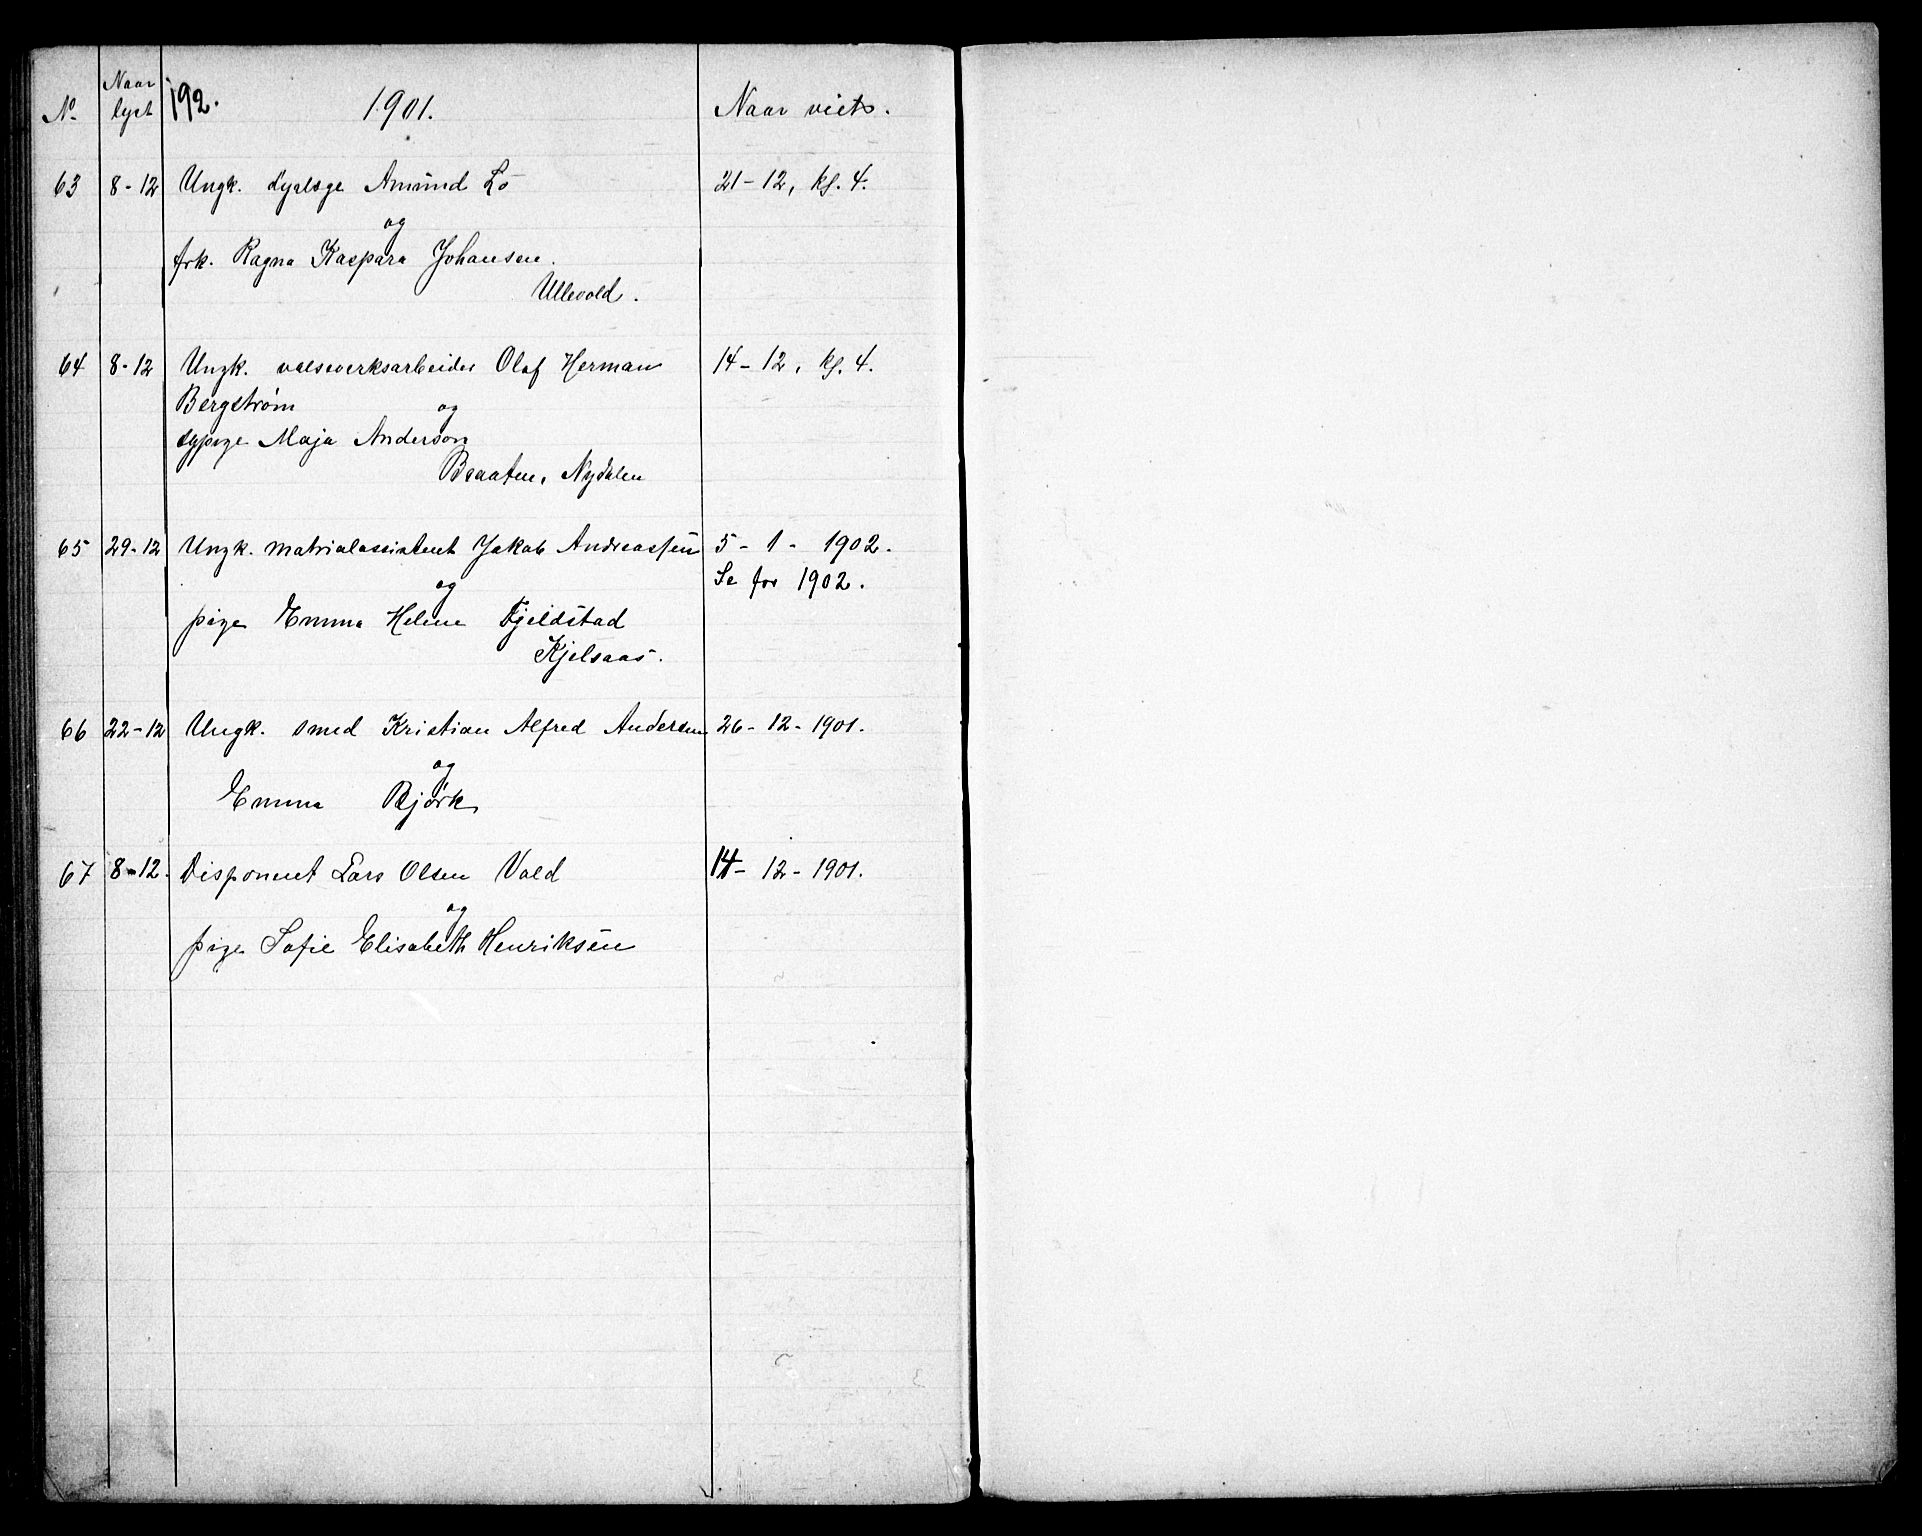 No. Naar lyst 192. 1901. Naar viets.
63 8-12 Ungk. dyrlæge Amund Lö 21-12, kl. 4.
og
frk. Ragna Kaspara Johansen.
Ullevold.
64 8-12 Ungk. valseverksarbeider Olaf Herman 14-12, kl. 4.
Bergstrøm og
sypige Maja Anderson
Braaten, Nydalen
65 29-12 Ungk. matrialassistent Jakob Andreassen 5-1-1902.
Se for 1902.
og
pige Emma Helene Fjeldstad
Kjelsaas.
66 22-12 Ungk. smed Kristian Alfred Andersen 26-12-1901.
og
Emma Björk
67 8-12. Disponent Lars Olsen Vold 14-12-1901.
og
pige Sofie Elisabeth Henriksen